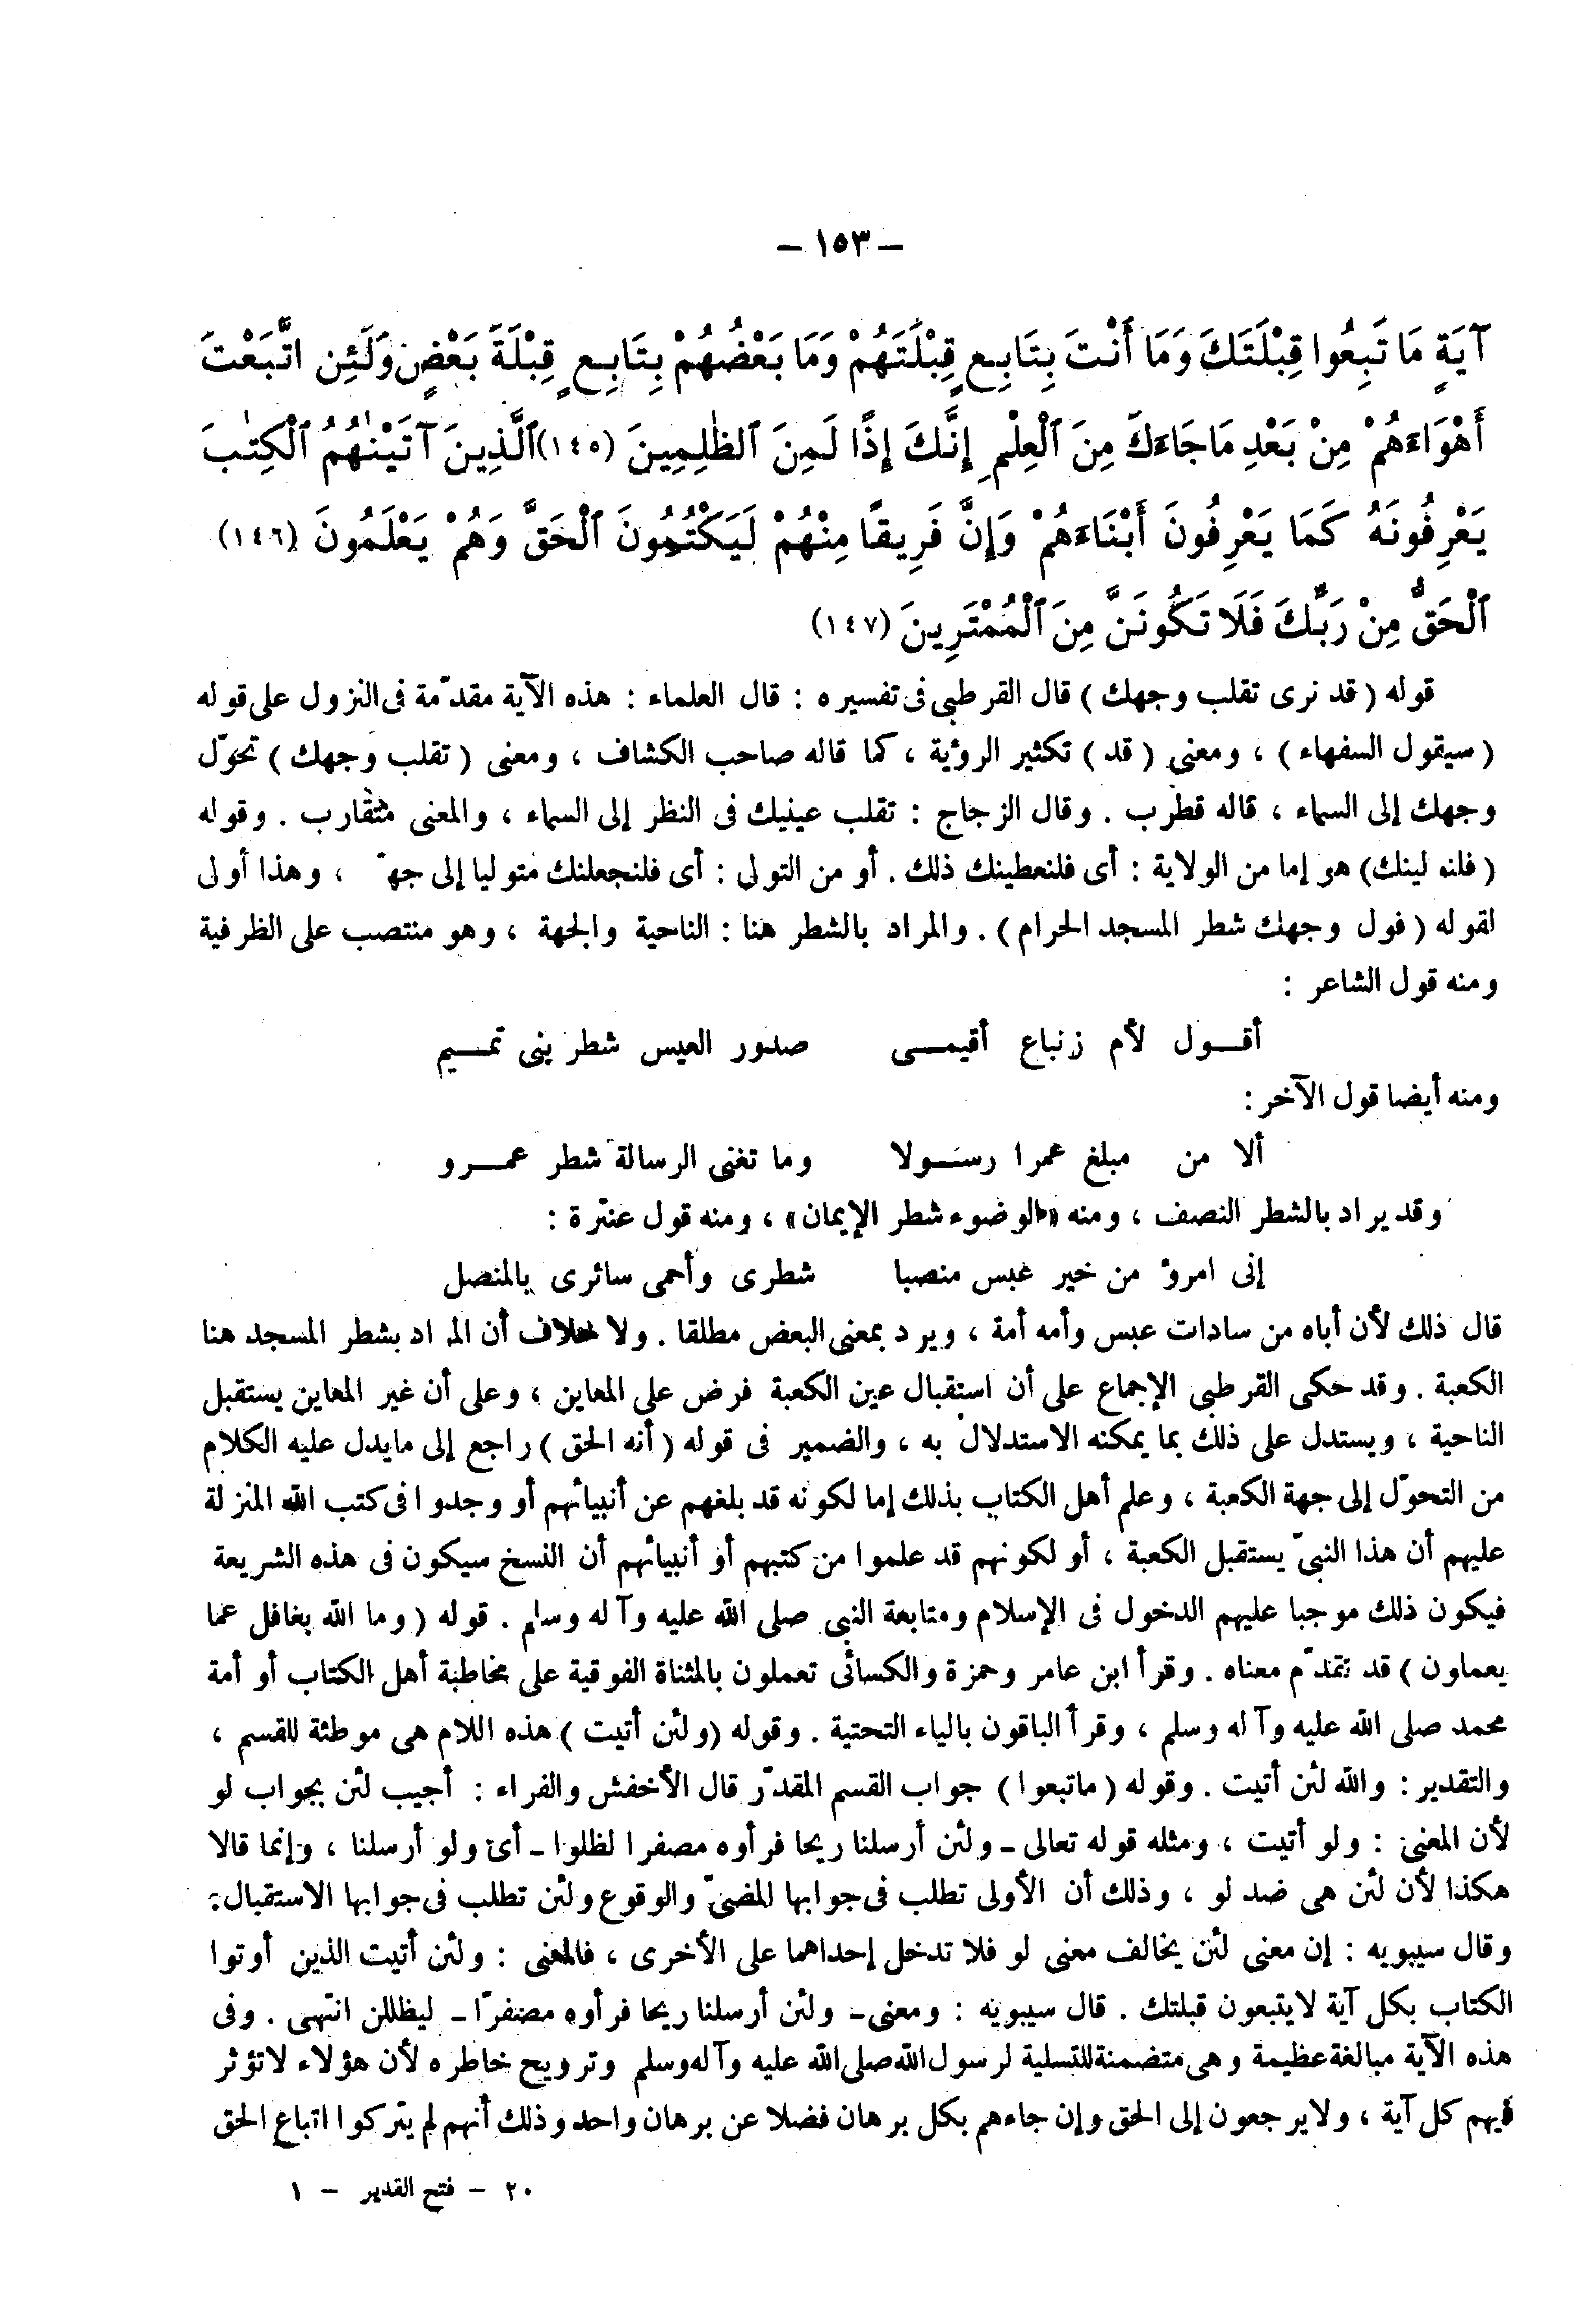 — ١٥٣ —
آيَةٍ مَا تَبِعُوا قِبْلَتَكَ وَمَا أَنْتَ بِتَابِعٍ قِبْلَتَهُمْ وَمَا بَعْضُهُمْ بِتَابِعٍ قِبْلَةَ بَعْضٍ وَلَئِنِ اتَّبَعْتَ
أَهْوَاءَهُمْ مِنْ بَعْدِ مَا جَاءَكَ مِنَ ٱلْعِلْمِ إِنَّكَ إِذًا لَمِنَ ٱلظّٰلِمِينَ (١٤٥) ٱلَّذِينَ آتَيْنٰهُمُ ٱلْكِتٰبَ
يَعْرِفُونَهُ كَمَا يَعْرِفُونَ أَبْنَاءَهُمْ وَإِنَّ فَرِيقًا مِنْهُمْ لَيَكْتُمُونَ ٱلْحَقَّ وَهُمْ يَعْلَمُونَ (١٤٦)
ٱلْحَقُّ مِنْ رَبِّكَ فَلَا تَكُونَنَّ مِنَ ٱلْمُمْتَرِينَ (١٤٧)
قوله ( قد نرى تقلب وجهك ) قال القرطبى فى تفسيره : قال العلماء : هذه الآية مقدّمة فى النزول على قوله
( سيقول السفهاء ) ، ومعنى ( قد ) تكثير الرؤية ، كما قاله صاحب الكشاف ، ومعنى ( تقلب وجهك ) تحوّل
وجهك إلى السماء ، قاله قطرب . وقال الزجاج : تقلب عينيك فى النظر إلى السماء ، والمعنى متقارب . وقوله
( فلنولينك) هو إما من الولاية : أى فلنعطينك ذلك . أو من التولى : أى فلنجعلنك متوليا إلى جهة ، وهذا أولى
لقوله ( فول وجهك شطر المسجد الحرام ) . والمراد بالشطر هنا : الناحية والجهة ، وهو منتصب على الظرفية
ومنه قول الشاعر :
أقــول لأم زنباع أقيمــى صدور العيس شطر بنى تمــيم
ومنه أيضا قول الآخر :
ألا من مبلغ عمرا رســولا وما تغنى الرسالة شطر عمــرو
وقد يراد بالشطر النصف ، ومنه «الوضوء شطر الإيمان» ، ومنه قول عنترة :
إنى امرؤ من خير عبس منصبا شطرى وأحمى سائرى بالمنصل
قال ذلك لأن أباه من سادات عبس وأمه أمة ، ويرد بمعنى البعض مطلقا . ولا خلاف أن المراد بشطر المسجد هنا
الكعبة . وقد حكى القرطبى الإجماع على أن استقبال عين الكعبة فرض على المعاين ، وعلى أن غير المعاين يستقبل
الناحية ، ويستدل على ذلك بما يمكنه الاستدلال به ، والضمير فى قوله ( أنه الحق ) راجع إلى مايدل عليه الكلام
من التحوّل إلى جهة الكعبة ، وعلم أهل الكتاب بذلك إما لكونه قد بلغهم عن أنبيائهم أو وجدوا فى كتب الله المنزلة
عليهم أن هذا النبىّ يستقبل الكعبة ، أو لكونهم قد علموا من كتبهم أو أنبيائهم أن النسخ سيكون فى هذه الشريعة
فيكون ذلك موجبا عليهم الدخول فى الإسلام ومتابعة النبى صلى الله عليه وآله وسلم . قوله ( وما الله بغافل عما
يعملون ) قد تقدّم معناه . وقرأ ابن عامر وحمزة والكسائى تعملون بالمثناة الفوقية على مخاطبة أهل الكتاب أو أمة
محمد صلى الله عليه وآله وسلم ، وقرأ الباقون بالياء التحتية . وقوله (ولئن أتيت ) هذه اللام هى موطئة للقسم ،
والتقدير : والله لئن أتيت . وقوله ( ماتبعوا ) جواب القسم المقدّر قال الأخفش والفراء : أجيب لئن بجواب لو
لأن المعنى : ولو أتيت ، ومثله قوله تعالى ـ ولئن أرسلنا ريحا فرأوه مصفرا لظلوا ـ أى ولو أرسلنا ، وإنما قالا
هكذا لأن لئن هى ضد لو ، وذلك أن الأولى تطلب فى جوابها المضىّ والوقوع ولئن تطلب فى جوابها الاستقبال .
وقال سيبويه : إن معنى لئن يخالف معنى لو فلا تدخل إحداهما على الأخرى ، فالمعنى : ولئن أتيت الذين أوتوا
الكتاب بكل آية لايتبعون قبلتك . قال سيبويه : ومعنى ـ ولئن أرسلنا ريحا فرأوه مصفرّا ـ ليظللن انتهى . وفى
هذه الآية مبالغة عظيمة وهى متضمنة للتسلية لرسول الله صلى الله عليه وآله وسلم وترويح خاطره لأن هؤلاء لاتؤثر
فيهم كل آية ، ولايرجعون إلى الحق وإن جاءهم بكل برهان فضلا عن برهان واحد وذلك أنهم لم يتركوا اتباع الحق
٢٠ — فتح القدير — ١